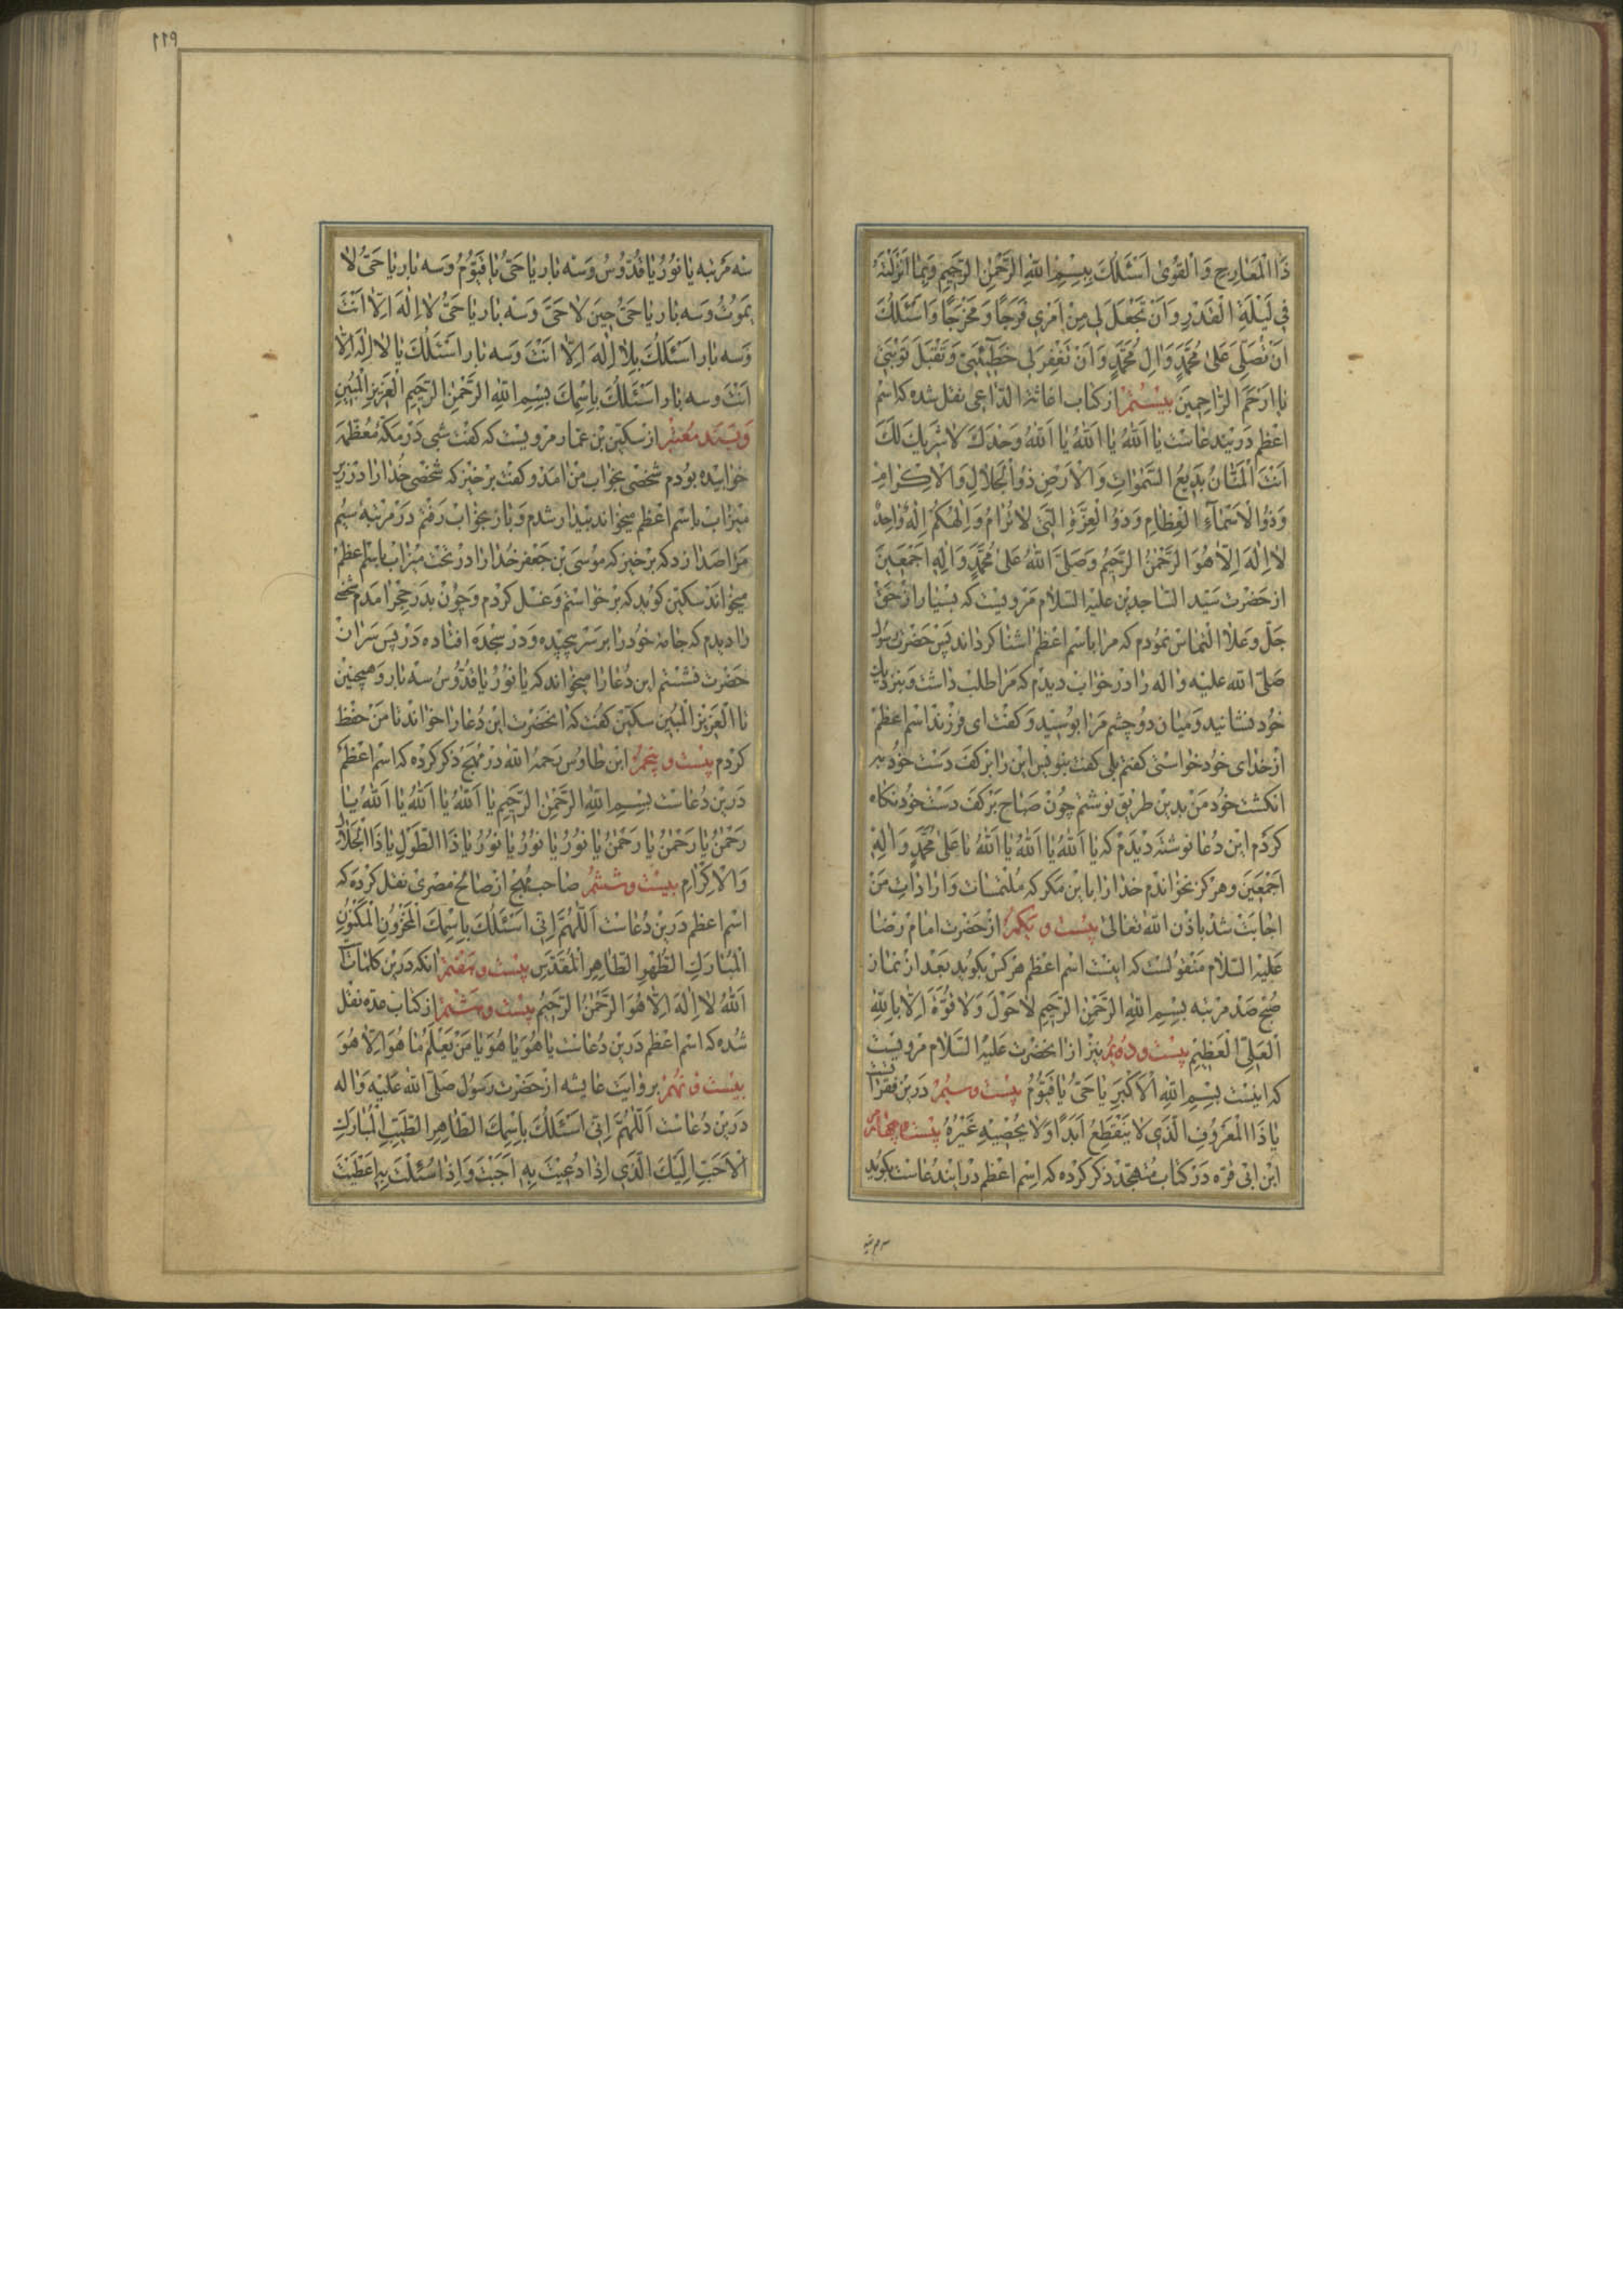 ذَا الْمَعٰارِجِ وَالْقُوىٰ اَسْئَلُكَ بِبِسْمِ اللّٰهِ الرَّحْمٰنِ الرَّحيمِ وَبِمٰا اَنْزَلْتَهُ
فِي لَيْلَةِ الْقَدْرِ وَاَنْ تَجْعَلَ لي مِنْ اَمْري فَرَجًا وَمَخْرَجًا وَاَسْئَلُكَ
اَنْ تُصَلّي عَلىٰ مُحَمَّدٍ وَاٰلِ مُحَمَّدٍ وَاَنْ تَغْفِرَ لي خَطيئَتي وَتَقْبَلَ تَوْبَتي
يا اَرْحَمَ الرّٰاحِمينَ بيستم از كتاب اغاثة الداعى نقل شده كه اسم
اعظم درين دعاست يٰا اَللّٰهُ يٰا اَللّٰهُ يٰا اَللّٰهُ وَحْدَكَ لٰا شَريكَ لَكَ
اَنْتَ الْمَنّٰانُ بَديعُ السَّمٰوٰاتِ وَالْاَرْضِ ذُو الْجَلٰالِ وَالْاِكْرٰامِ
وَذُو الْاَسْمٰآءِ الْعِظٰامِ وَذُو الْعِزَّةِ الَّتي لٰا تُرٰامُ وَاِلٰهُكُمْ اِلٰهٌ وٰاحِدٌ
لٰا اِلٰهَ اِلّٰا هُوَ الرَّحْمٰنُ الرَّحيمُ وَصَلَّى اللّٰهُ عَلىٰ مُحَمَّدٍ وَاٰلِهِ اَجْمَعينَ
از حضرت سيد الساجدين عليه السلام مرويست كه بسيار از حق
جل وعلا التماس نمودم كه مرا باسم اعظم اشنا گرداند پس حضرت رسول
صلى الله عليه واله را در خواب ديدم كه مرا طلب داشت وبنزديك
خود نشانيد وميان دو چشم مرا بوسيد وگفت اى فرزند اسم اعظم
از خداى خود خواستى گفتم بلى گفت بنويس اين را بر كف دست خود به
انگشت خود من بدين طريق نوشتم چون صباح بر كف دست خود نگاه
كردم اين دعا نوشته ديدم كه يا اَللّٰهُ يٰا اَللّٰهُ يٰا اَللّٰهُ يا عَلىٰ مُحَمَّدٍ وَاٰلِهِ
اَجْمَعينَ وهرگز نخواندم خدا را باين مگر كه ملتمسات وارادات من
اجابت شد باذن الله تعالى بيست و يكم از حضرت امام رضا
عليه السلام منقولست كه اينست اسم اعظم هر كس بگويد بعد از نماز
صبح صد مرتبه بِسْمِ اللّٰهِ الرَّحْمٰنِ الرَّحيمِ لٰا حَوْلَ وَلٰا قُوَّةَ اِلّٰا بِاللّٰهِ
الْعَلِيِّ الْعَظيمِ بيست و دويم نيز از انحضرت عليه السلام مرويست
كه اينست بِسْمِ اللّٰهِ الْاَكْبَرِ يٰا حَيُّ يٰا قَيُّومُ بيست و سيم درين فقرات
يٰا ذَا الْمَعْرُوفِ الَّذي لٰا يَنْقَطِعُ اَبَدًا وَلٰا يُحْصيهِ غَيْرُهُ بيست و چهارم
ابن ابى قره در كتاب متهجد ذكر كرده كه اسم اعظم در ايندعاست بگويد
سه مرتبه
١١٩
سه مرتبه يٰا نُورُ يٰا قُدُّوسُ وسه بار يٰا حَيُّ يٰا قَيُّومُ وسه بار يٰا حَيُّ لٰا
يَمُوتُ وسه بار يٰا حَيُّ حينَ لٰا حَيَّ وسه بار يٰا حَيُّ لٰا اِلٰهَ اِلّٰا اَنْتَ
وسه بار اَسْئَلُكَ بِلٰا اِلٰهَ اِلّٰا اَنْتَ وسه بار اَسْئَلُكَ يٰا لٰا اِلٰهَ اِلّٰا
اَنْتَ وسه بار اَسْئَلُكَ بِاسْمِكَ بِسْمِ اللّٰهِ الرَّحْمٰنِ الرَّحيمِ الْعَزيزِ الْمُبينِ
وبسند معتبر از سكين بن عمار مرويست كه گفت شبى در مكه معظمه
خوابيده بودم شخصى بخواب من امد وگفت برخيز كه شخصى خدا را در زير
ميزاب باسم اعظم ميخواند بيدار شدم وباز بخواب رفتم در مرتبه سيم
مرا صدا زد كه برخيز كه موسى بن جعفر خدا را در تحت ميزاب باسم اعظم
ميخواند سكين گويد كه برخواستم وغسل كردم وچون بدر حجر امدم شخصى
را ديدم كه جامه خود را بر سر پيچيده ودر سجده افتاده در پس سر ان
حضرت نشستم اين دعا را ميخواند كه يٰا نُورُ يٰا قُدُّوسُ سه بار وهمچنين
تا الْعَزيزِ الْمُبينِ سكين گفت كه انحضرت اين دعا را خواند تا من حفظ
كردم بيست و پنجم ابن طاوس رحمه الله در مهج ذكر كرده كه اسم اعظم
درين دعاست بِسْمِ اللّٰهِ الرَّحْمٰنِ الرَّحيمِ يٰا اَللّٰهُ يٰا اَللّٰهُ يٰا اَللّٰهُ يٰا
رَحْمٰنُ يٰا رَحْمٰنُ يٰا رَحْمٰنُ يٰا نُورُ يٰا نُورُ يٰا نُورُ يٰا ذَا الطَّوْلِ يٰا ذَا الْجَلٰالِ
وَالْاِكْرٰامِ بيست و ششم صاحب مهج از صالح مصرى نقل كرده كه
اسم اعظم درين دعاست اَللّٰهُمَّ اِنّي اَسْئَلُكَ بِاسْمِكَ الْمَخْزُونِ الْمَكْنُونِ
الْمُبٰارَكِ الطُّهْرِ الطّٰاهِرِ الْمُقَدَّسِ بيست و هفتم انكه درين كلمات
اَللّٰهُ لٰا اِلٰهَ اِلّٰا هُوَ الرَّحْمٰنُ الرَّحيمُ بيست و هشتم از كتاب عده نقل
شده كه اسم اعظم درين دعاست يٰا هُوَ يٰا هُوَ يٰا مَنْ يَعْلَمُ مٰا هُوَ اِلّٰا هُوَ
بيست و نهم بروايت عايشه از حضرت رسول صلى الله عليه واله
درين دعاست اَللّٰهُمَّ اِنّي اَسْئَلُكَ بِاسْمِكَ الطّٰاهِرِ الطَّيِّبِ الْمُبٰارَكِ
الْاَحَبِّ اِلَيْكَ الَّذي اِذٰا دُعيتَ بِهِ اَجَبْتَ وَاِذٰا سُئِلْتَ بِهِ اَعْطَيْتَ